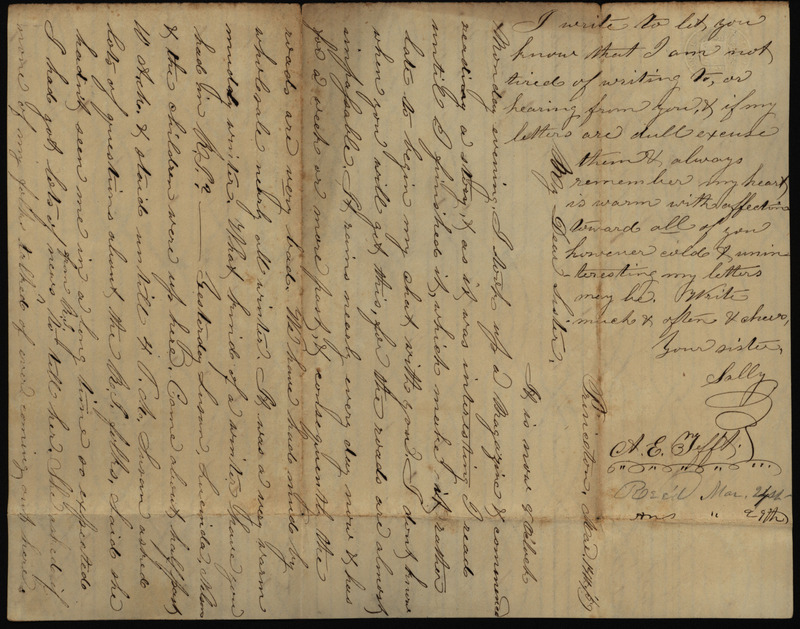 Princeton, Mar. 14th/59
It is now 9 O'clock
My Dear Sister,
Monday evening. I took up a Magazine & commenced
reading a story, & as it was interesting I read
until I finished it, which makes it rather
late to begin my chat with you. I don't know
when you will get this, for the roads are almost
impassable. It rains nearly every day now & has
for a week or more past, & consequently the
roads are very bad. We have had mud by
wholesale nearly all winter. It was a very warm
muddy winter. What kind of a winter have you
had in R.I.? — Yesterday Susan, Lucinda, Adam
& the children were up here. Came about half past
10 A.M. & staid untill 4 P.M. Susan asked
lots of questions about the R.I. folks. Said she
hadnt seen me in a long time so expected
I had got lots of news from R.I. to tell her. She asked if
none of my folks talked of ever coming out here
I write to let you
know that I am not
tired of writing to, or
hearing from you, & if my
letters are dull excuse
them & always
remember my heart
is warm with affection
toward all of you
however cold & unin
teresting my letters
may be. Write
much & often &
Your sister,
Sally
A. E. Tefft;
Rec'd Mar. 24th
Ans " 29th